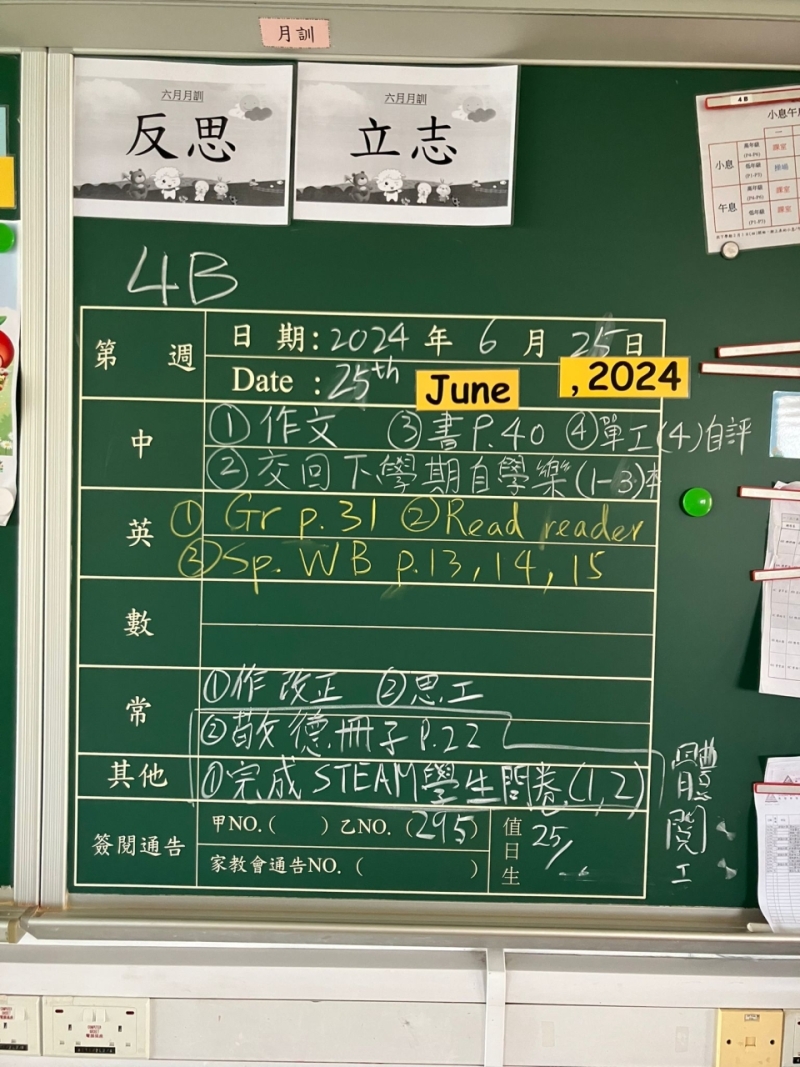 月訓
六月月訓
反思
六月月訓
立志
4B
小息
午息
4B
第 週
日 期: 2024 年 6 月 25 日
Date : 25th June , 2024
中
① 作文 ③ 書 P.40 ④ 單工(4)自評
② 交回下學期自學樂(1-3)
英
① Gr p.31 ② Read reader
③ Sp. WB p.13, 14, 15
數
常
① 作改正 ② 思工
② 敬德冊子 P.22
其他
① 完成STEAM學生問卷(1,2)
簽閱通告
甲NO.( ) 乙NO.(295)
家教會通告NO.( )
值日生
25/
閱
工